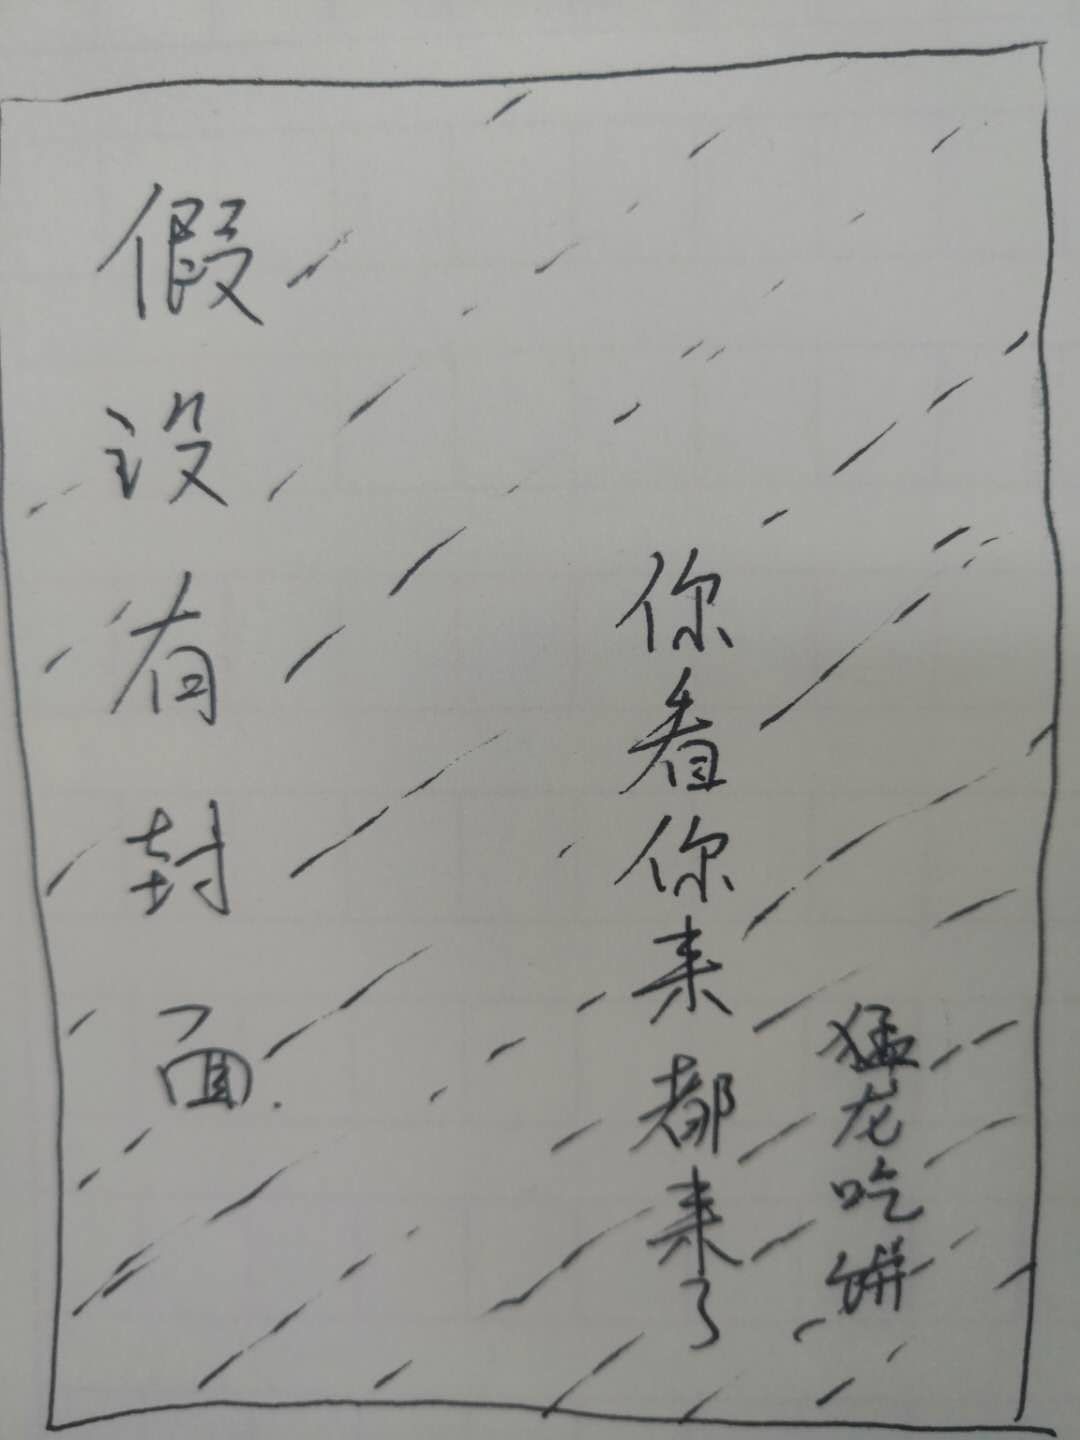 假设有封面.
你看你来都来了
猛龙吃饼